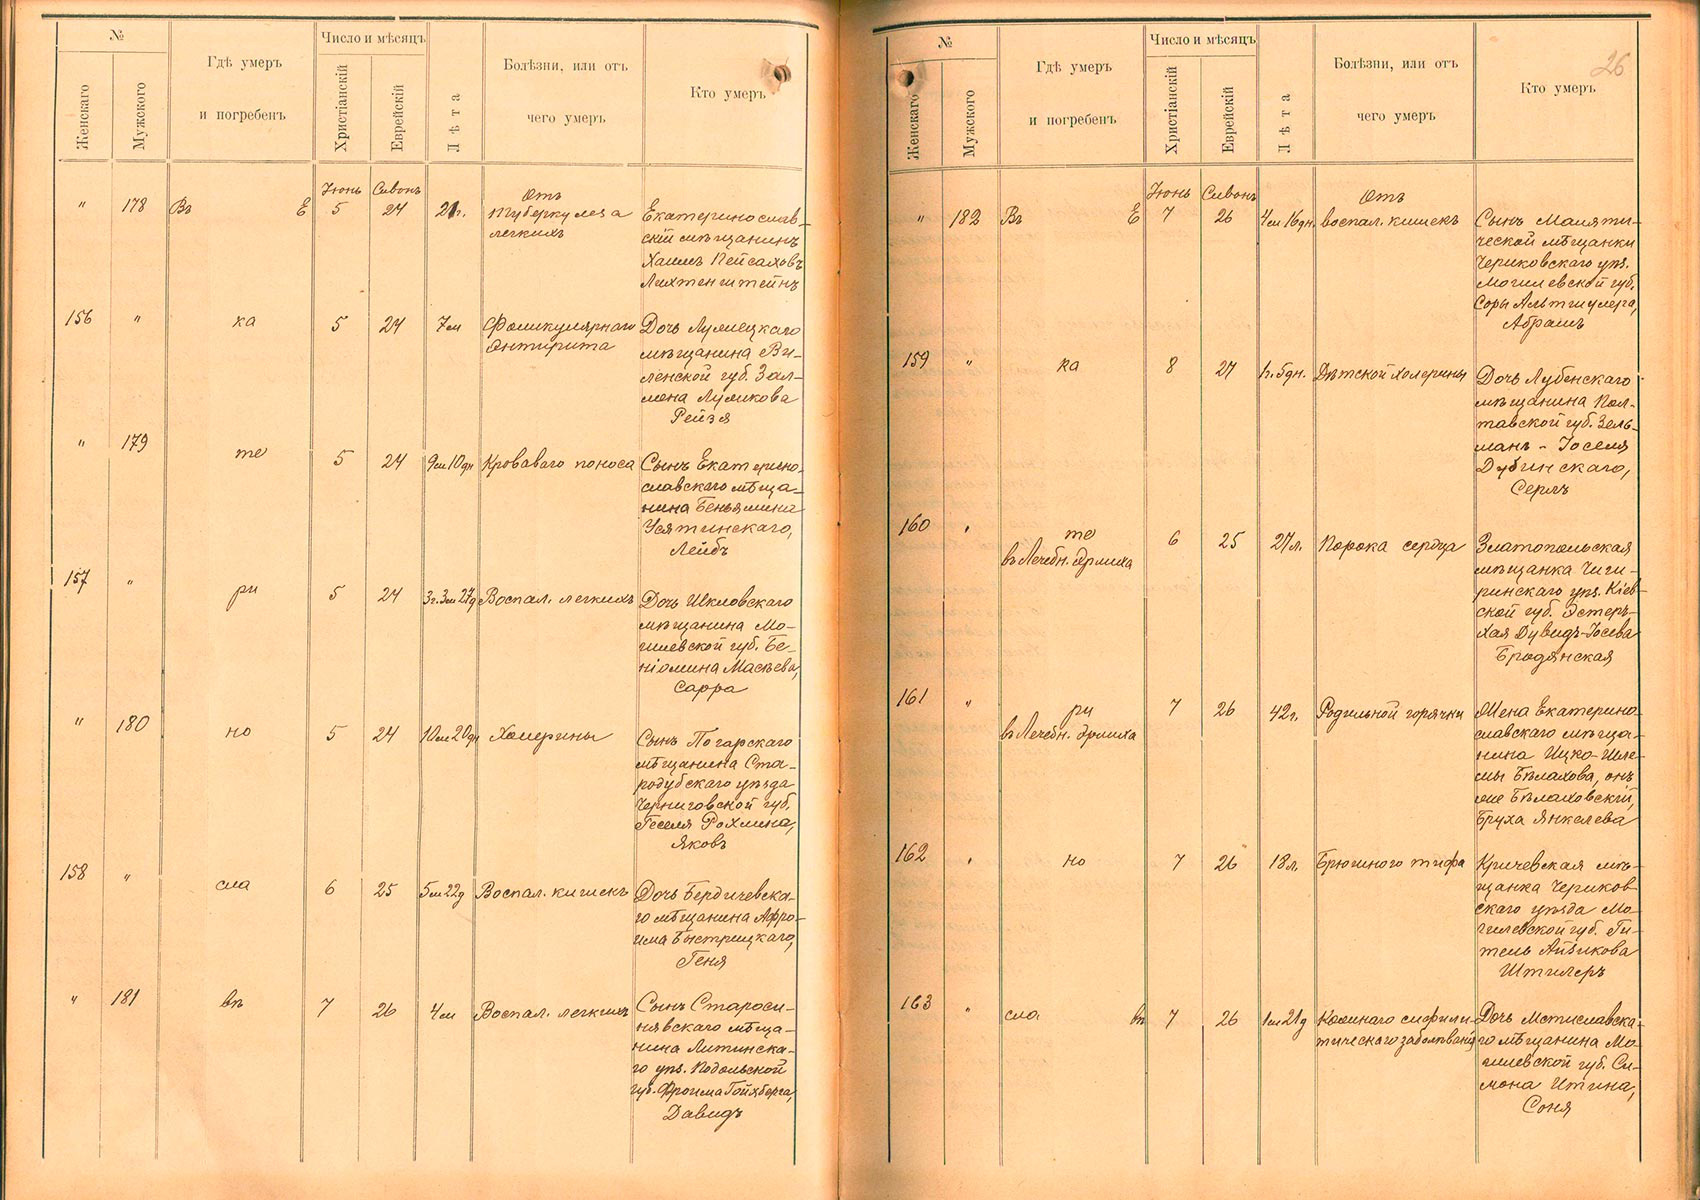 №
Женскаго
Мужского
Гдѣ умеръ
и погребенъ
Число и мѣсяцъ
Христіанскій
Еврейскій
Лѣта
Болѣзни, или отъ
чего умеръ
Кто умеръ
Іюнь Сивонъ
" 178 Въ Е 5 24 21г.
Отъ
туберкулеза
легкихъ
Екатеринослав-
скій мѣщанинъ
Хаимъ Пейсаховъ
Лихтенштейнъ
156 " ка 5 24 7м
Фоликулярнаго
энтирита
Дочь
мѣщанина Ви-
ленской губ. Зал-
мона
Рейзя
" 179 те 5 24 9м 10дн Кроваваго поноса
Сынъ Екатерино-
славскаго мѣща-
нина Беньямина
Усятинскаго,
Лейбъ
157 " ри 5 24 3г. 3м 27д Воспал. легкихъ
Дочь Шкловскаго
мѣщанина Мо-
гилевской губ. Бе-
ніомина
Сарра
" 180 но 5 24 10м 20дн Холерины
Сынъ Погарскаго
мѣщанина Ста-
родубскаго уѣзда
Черниговской губ.
Геселя Рохлина,
Яковъ
158 " сла 6 25 5м 22д Воспал. кишекъ
Дочь Бердичевска-
го мѣщанина Афро-
има Быстрицкаго,
Геня
" 181 въ 7 26 4м Воспал. легкихъ
Сынъ Староси-
нявскаго мѣща-
нина Литинска-
го уѣз. Подольской
губ. Фроима Гойхберга,
Давидъ
26
№
Женскаго
Мужского
Гдѣ умеръ
и погребенъ
Число и мѣсяцъ
Христіанскій
Еврейскій
Лѣта
Болѣзни, или отъ
чего умеръ
Кто умеръ
Іюнь Сивонъ
" 182 Въ Е 7 26 4м 16дн.
Отъ
воспал. кишекъ
Сынъ Маляти-
ческой мѣщанки
Чериковскаго уѣз.
Могилевской губ.
Соры Альтшулера,
Абрамъ
159 " ка 8 27 1г. 5дн. Дѣтской холерины
Дочь Лубенскаго
мѣщанина Пол-
тавской губ. Зель-
манъ-Іоселя
Дубинскаго,
Серль
160 " те
въ Лечебн.
6 25 27л. Порока сердца
Златопольская
мѣщанка Чиги-
ринскаго уѣз. Кіев-
ской губ. Эстеръ-
Хая Дувидъ-Іосева
Бродянская
161 " ри
въ Лечебн.
7 26 42г. Родильной горячки
Жена Екатерино-
славскаго мѣща-
нина Ицко-Шле-
мы Бѣлахова, онъ
же Бѣлаховскій,
Бруха Янкелева
162 " но 7 26 18л. Брюшного тифа
Кричевская мѣ-
щанка Чериков-
скаго уѣзда Мо-
гилевской губ. Ги-
тель Айзикова
Штилеръ
163 " сла въ 7 26 1м 21д
Кожнаго сифили-
тическаго заболѣванія
Дочь Мстиславска-
го мѣщанина Мо-
гилевской губ. Си-
мона Итина,
Соня